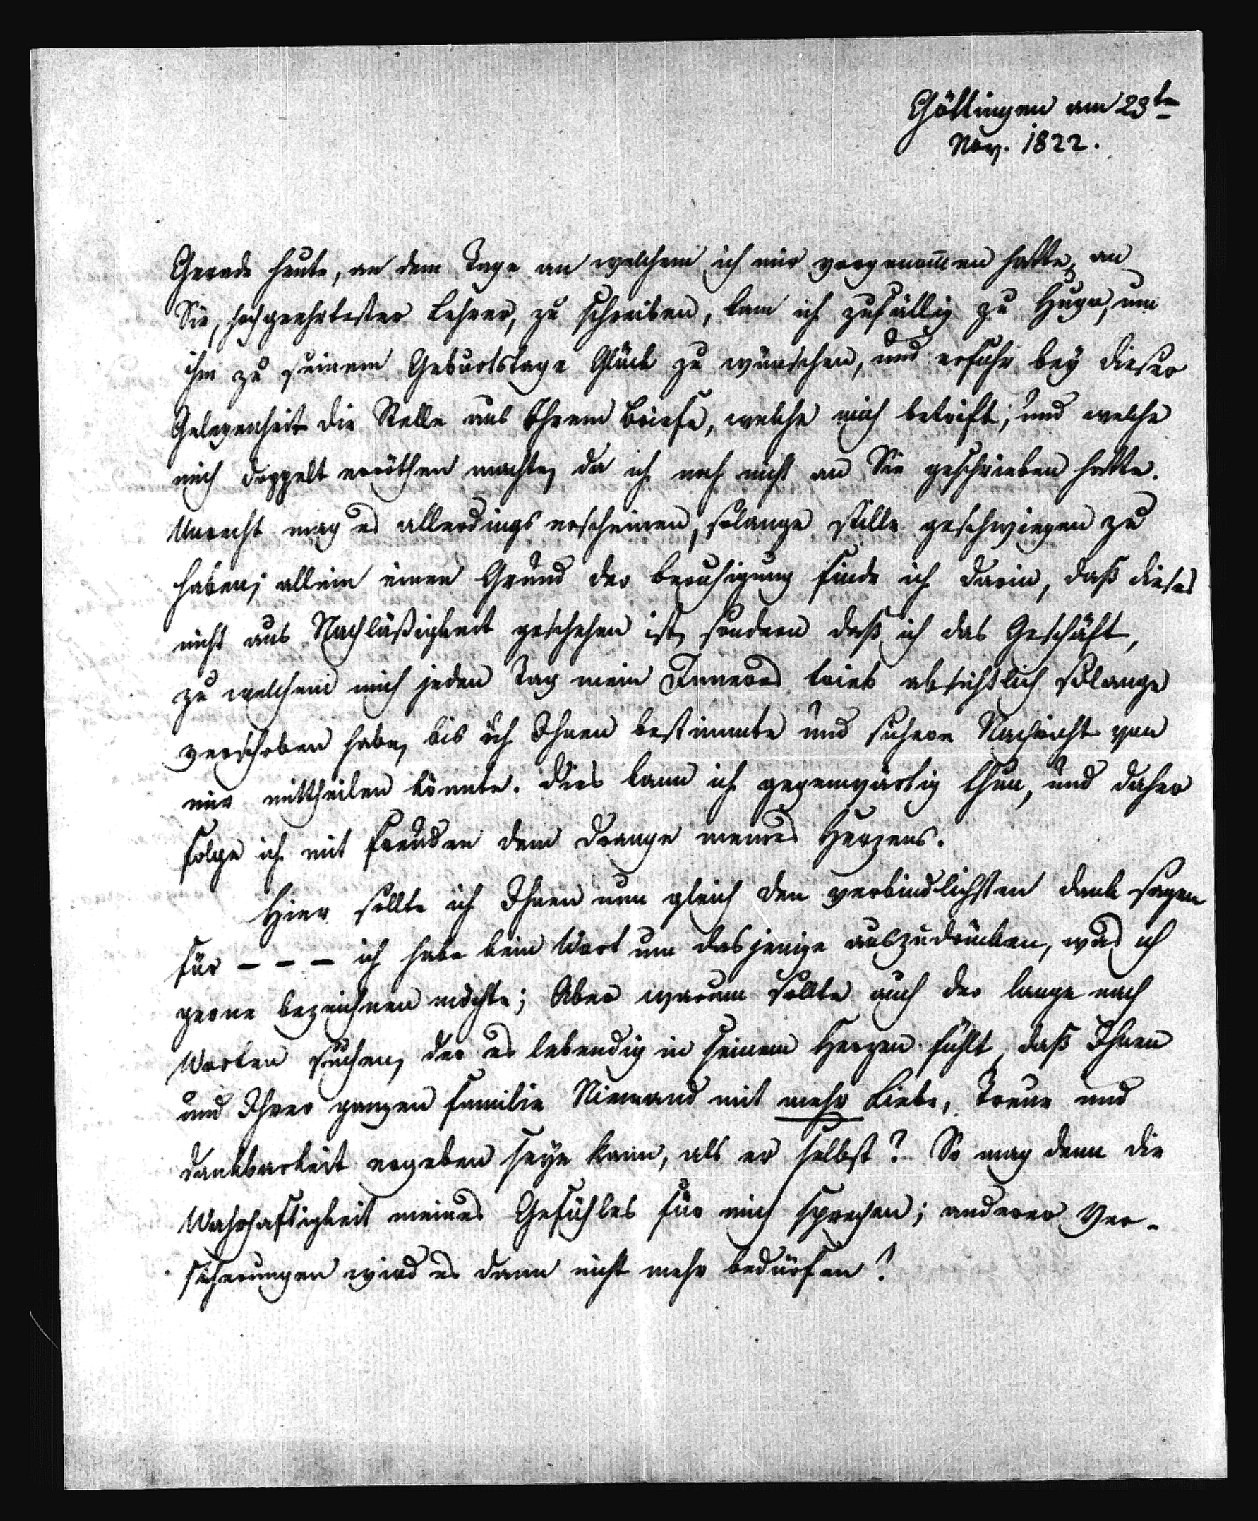 Göttingen am 23ten
Nov. 1822.
Gerade heute, an dem Tage an welchem ich mir vorgenom̄en hatte, an
Sie, hochgeehrtester Lehrer, zu schreiben, kam ich zufällig zu Hugo, um
ihm zu seinem Geburtstage Glück zu wünschen, und erfuhr bey dieser
Gelegenheit die Stelle aus Ihrem Briefe, welche mich betrift, und welche
mich doppelt erröthen machte, da ich noch nicht an Sie geschrieben hatte.
Unrecht mag es allerdings erscheinen, solange stille geschwiegen zu
haben; allein einen Grund der Beruhigung finde ich darin, daß dieses
nicht aus Nachläßigkeit geschehen ist, sondern daß ich das Geschäft,
zu welchem mich jeden Tag mein Inneres trieb absichtlich solange
verschoben habe, bis ich Ihnen bestimmte und sichere Nachricht von
mir mittheilen könnte. Dies kann ich gegenwärtig thun, und daher
folge ich mit Freuden dem Drange meines Herzens.
Hier sollte ich Ihnen nun gleich den verbindlichsten Dank sagen
für – – – ich habe kein Wort um dasjenige auszudrücken, was ich
gerne bezeichnen möchte; Aber warum sollte auch der lange nach
Worten suchen, der es lebendig in seinem Herzen fühlt, daß Ihnen
und Ihrer ganzen Familie Niemand mit mehr Liebe, Treue und
Dankbarkeit ergeben seyn kann, als er selbst? So mag denn die
Wahrhaftigkeit meines Gefühles für mich sprechen; anderer Ver-
sicherungen wird es dann nicht mehr bedürfen!